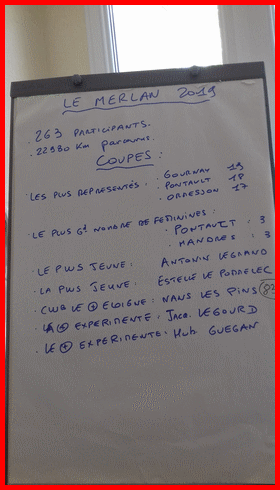 LE MERLAN 2019
. 263 PARTICIPANTS.
. 22980 Km parcourus.
COUPES :
. LES PLUS REPRESENTÉS : . GOURNAY 19
. PONTAULT 18
. ORMESSON 17
. LE PLUS Gd NOMBRE DE FEMININES :
. PONTAULT : 3
. MANDRES : 3
. LE PLUS JEUNE : ANTONIN LEGRAND
. LA PLUS JEUNE : ESTELLE LE PORDELEC
. CLUB LE + ELOIGNE : NANS LES PINS (83)
. LA + EXPERIMENTE : Jacq. LEGOURD
. LE + EXPERIMENTE : Hub. GUEGAN